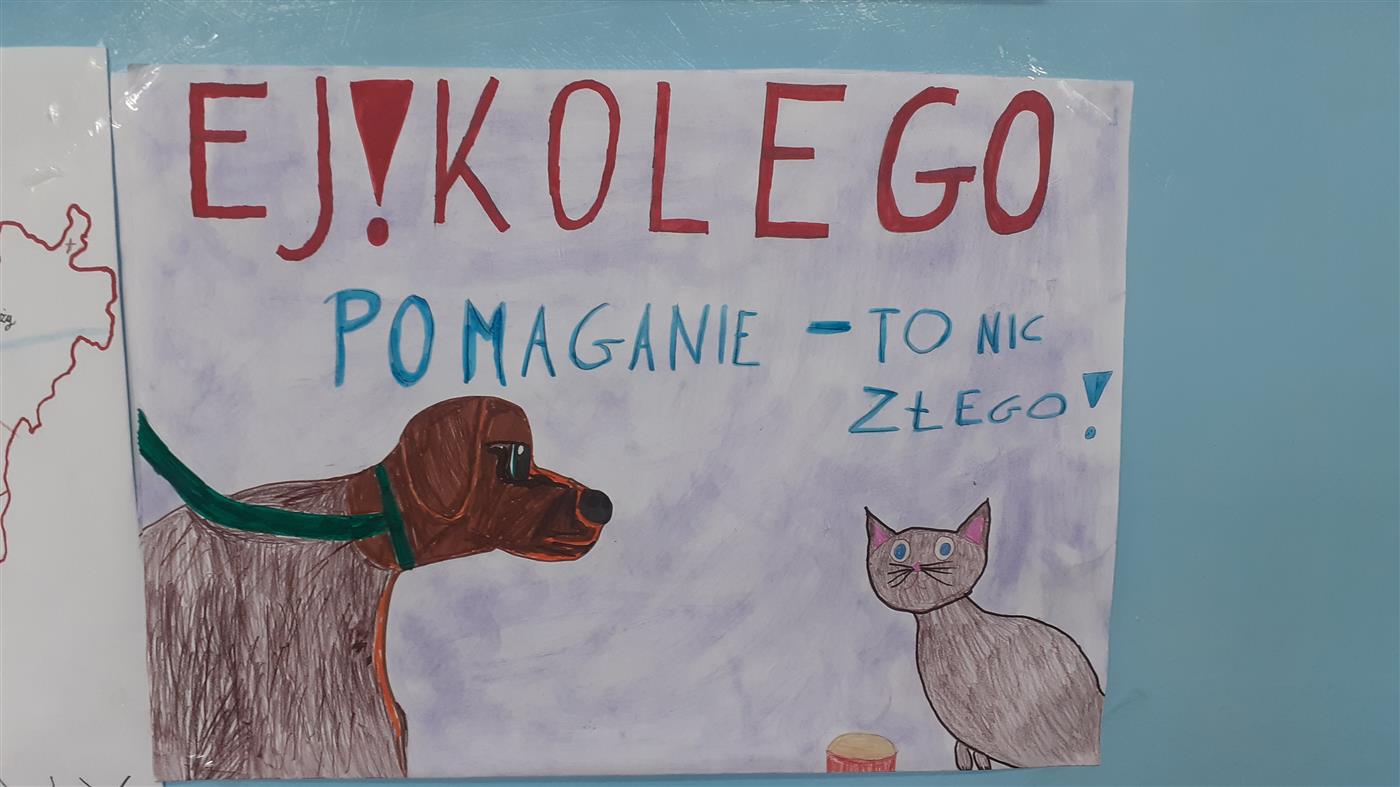 EJ!KOLEGO
POMAGANIE - TO NIC
ZŁEGO!